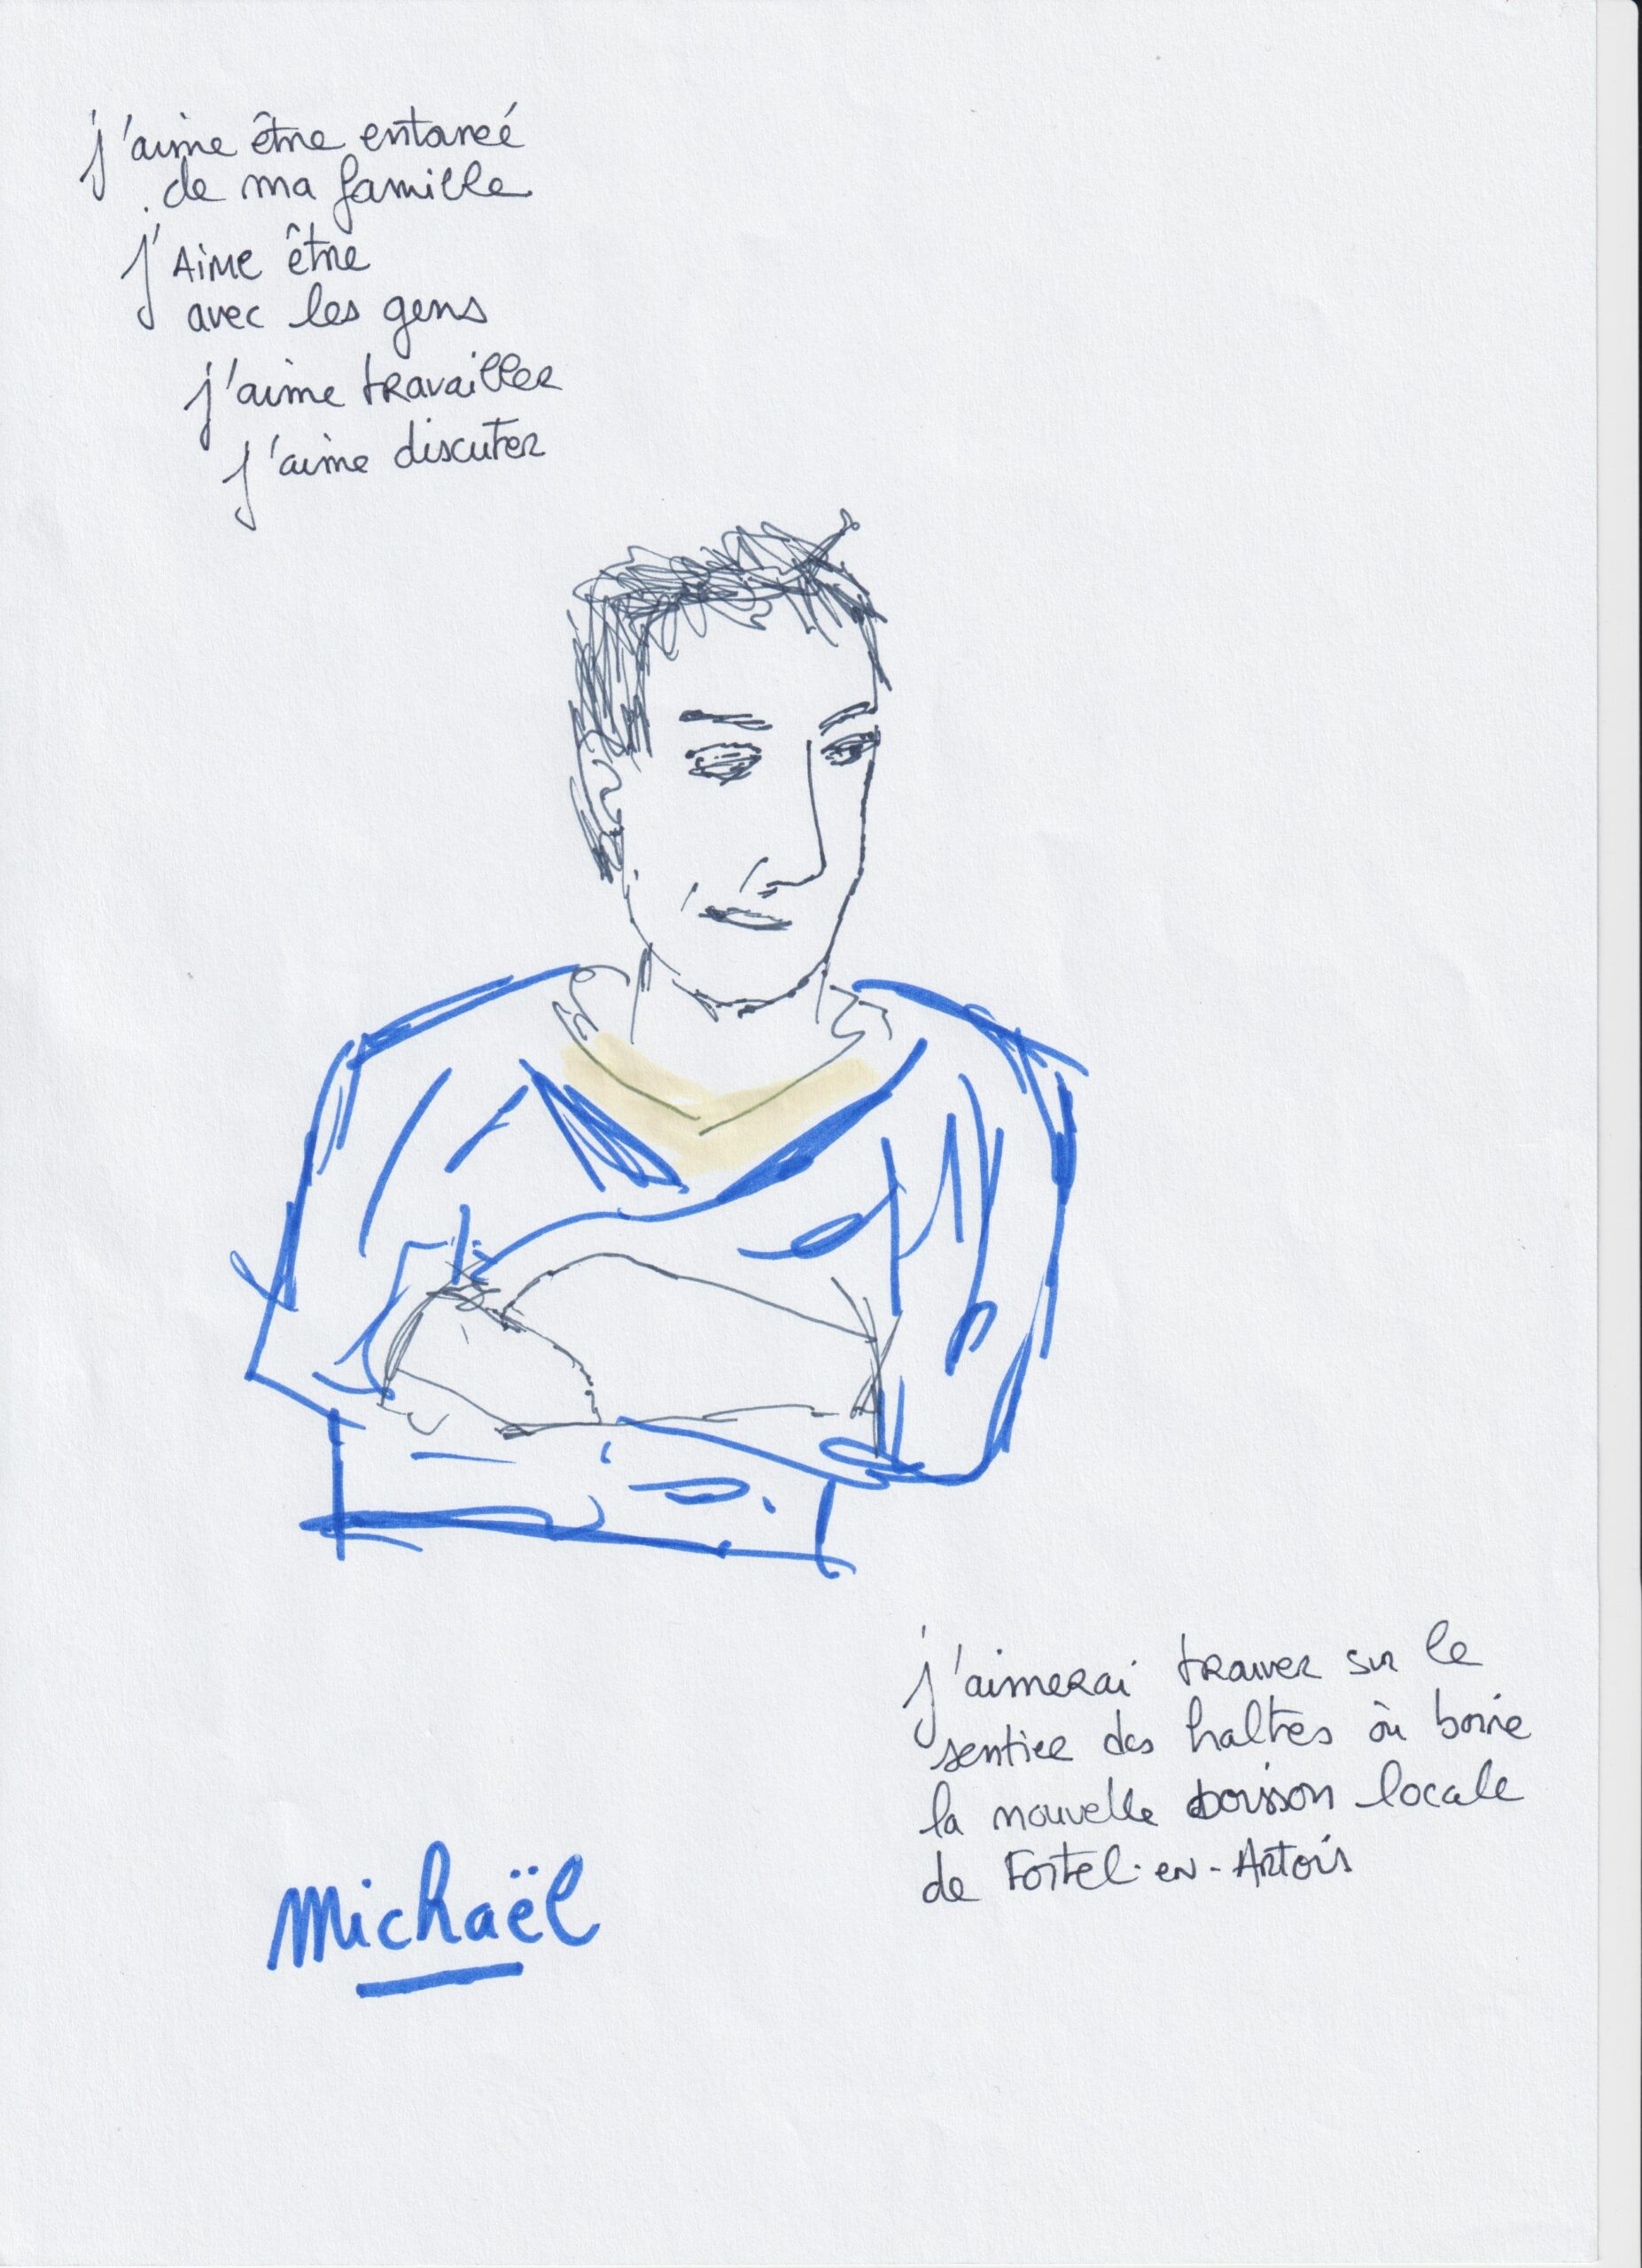 j'aime être entouré
de ma famille
j'Aime être
avec les gens
j'aime travailler
j'aime discuter
j'aimerai trouver sur le
sentier des haltes où boire
la nouvelle boisson locale
de Fortel-en-Artois
Michaël